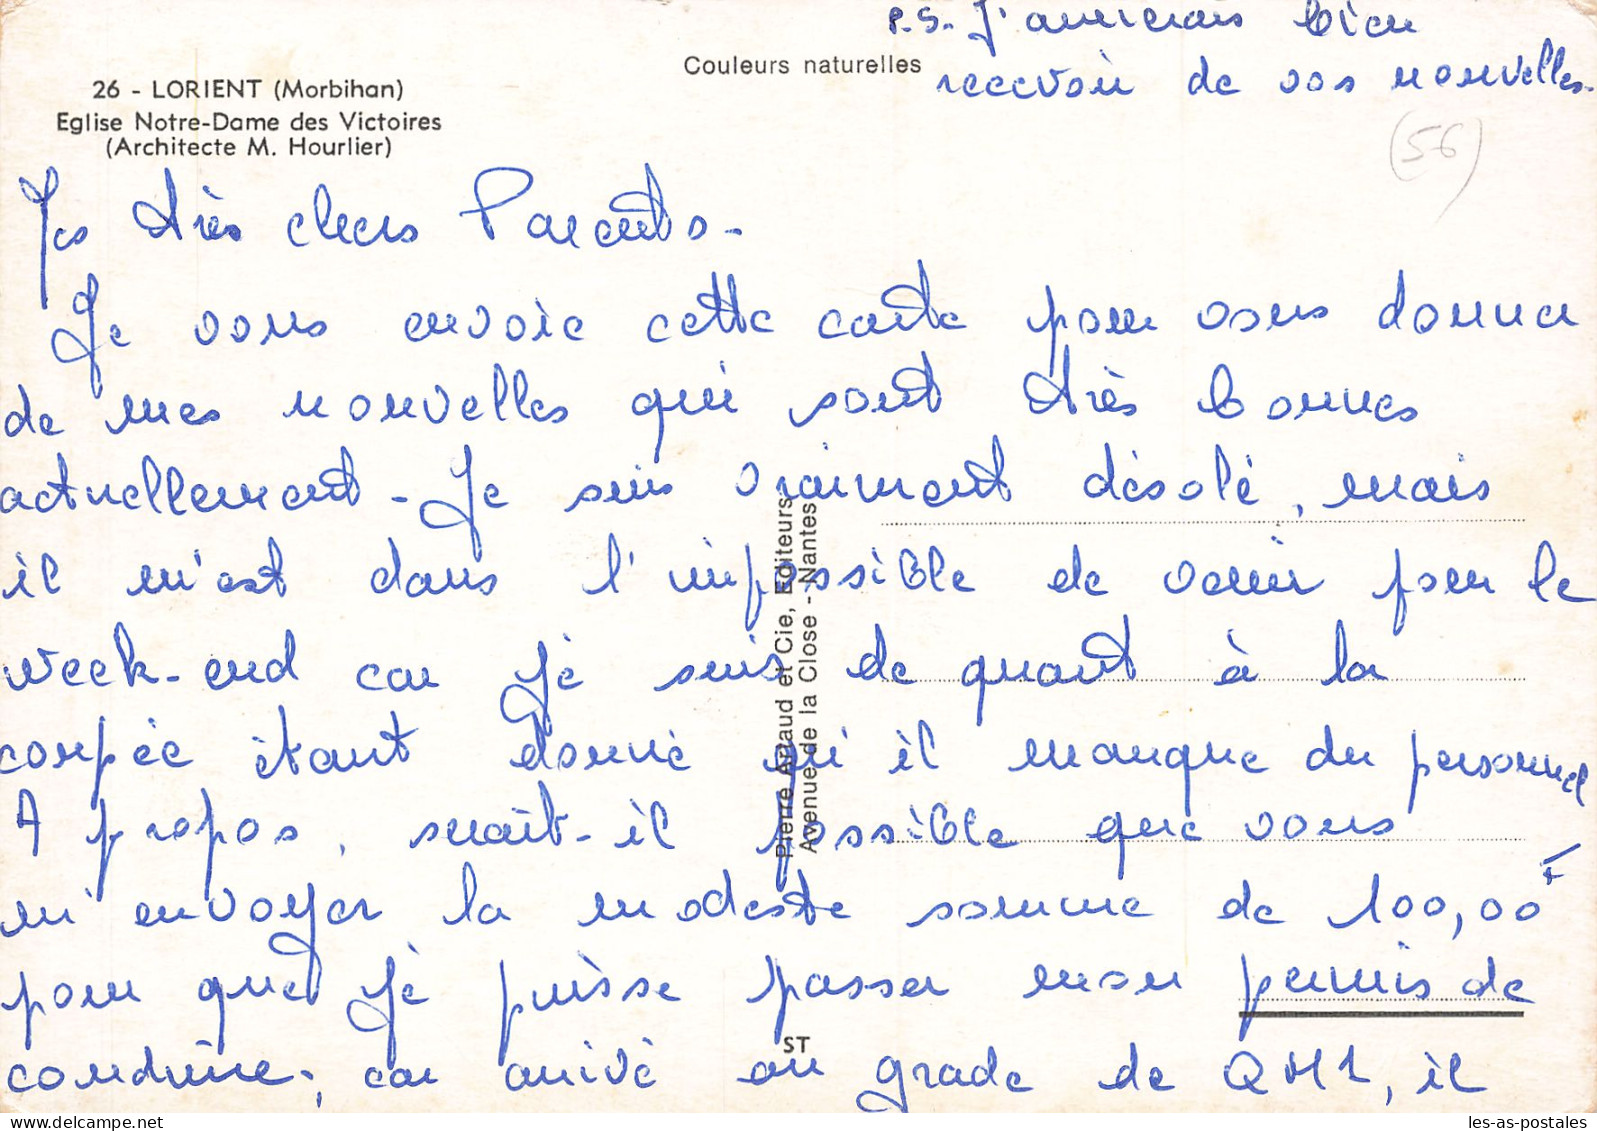 P.S. J'aimerais bien
recevoir de vos nouvelles.
Couleurs naturelles
26 - LORIENT (Morbihan)
Eglise Notre-Dame des Victoires
(Architecte M. Hourlier)
(56)
très chers Parents.
Je vous envoie cette carte pour vous donner
de mes nouvelles qui sont très bonnes
actuellement. Je suis vraiment désolé, mais
il m'est dans l'impossible de venir pour le
week-end car je suis de quart à la
coupée étant donné qu'il manque du personnel
A propos, serait-il possible que vous
m'envoyer la modeste somme de 100,00 F
pour que je puisse passer mon permis de
conduire, car arrivé au grade de QM1, il
Pierre Artaud et Cie, Editeurs
Avenue de la Close - Nantes
ST
les-as-postales